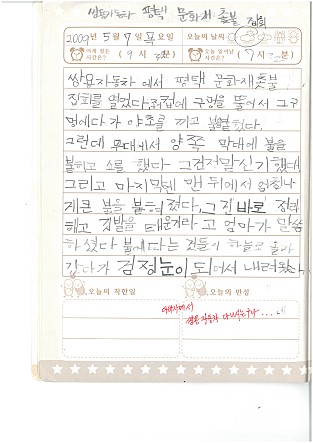 쌍용자동차 평택 문화제 촛불 집회
2009년 5월 7일 목요일 오늘의 날씨
어제 잠든 시간은? (9시 분) 오늘 일어난 시간은? (7시 분)
쌍용자동차에서 평택 문화재촛불
집회를 열였다. 컵에 구멍을 뚤어서 그구
멍에다가 야초를 끼고 했다.
그런데 무대에서 양쪽 막대에 불을
붙히고 쇼를 했다 그건정말신기했다.
그리고 마지막엔 맨 뒤에서 엄청나
게큰 불을 붙혔다. 그건바로
해고 깃발을 태운거라고 엄마가 말씀
하셨다 불에타는 것들이 하늘로 올라
갔다가 검정눈이되어서 내려왔다.
오늘의 착한일
오늘의 반성
쌍용자동차